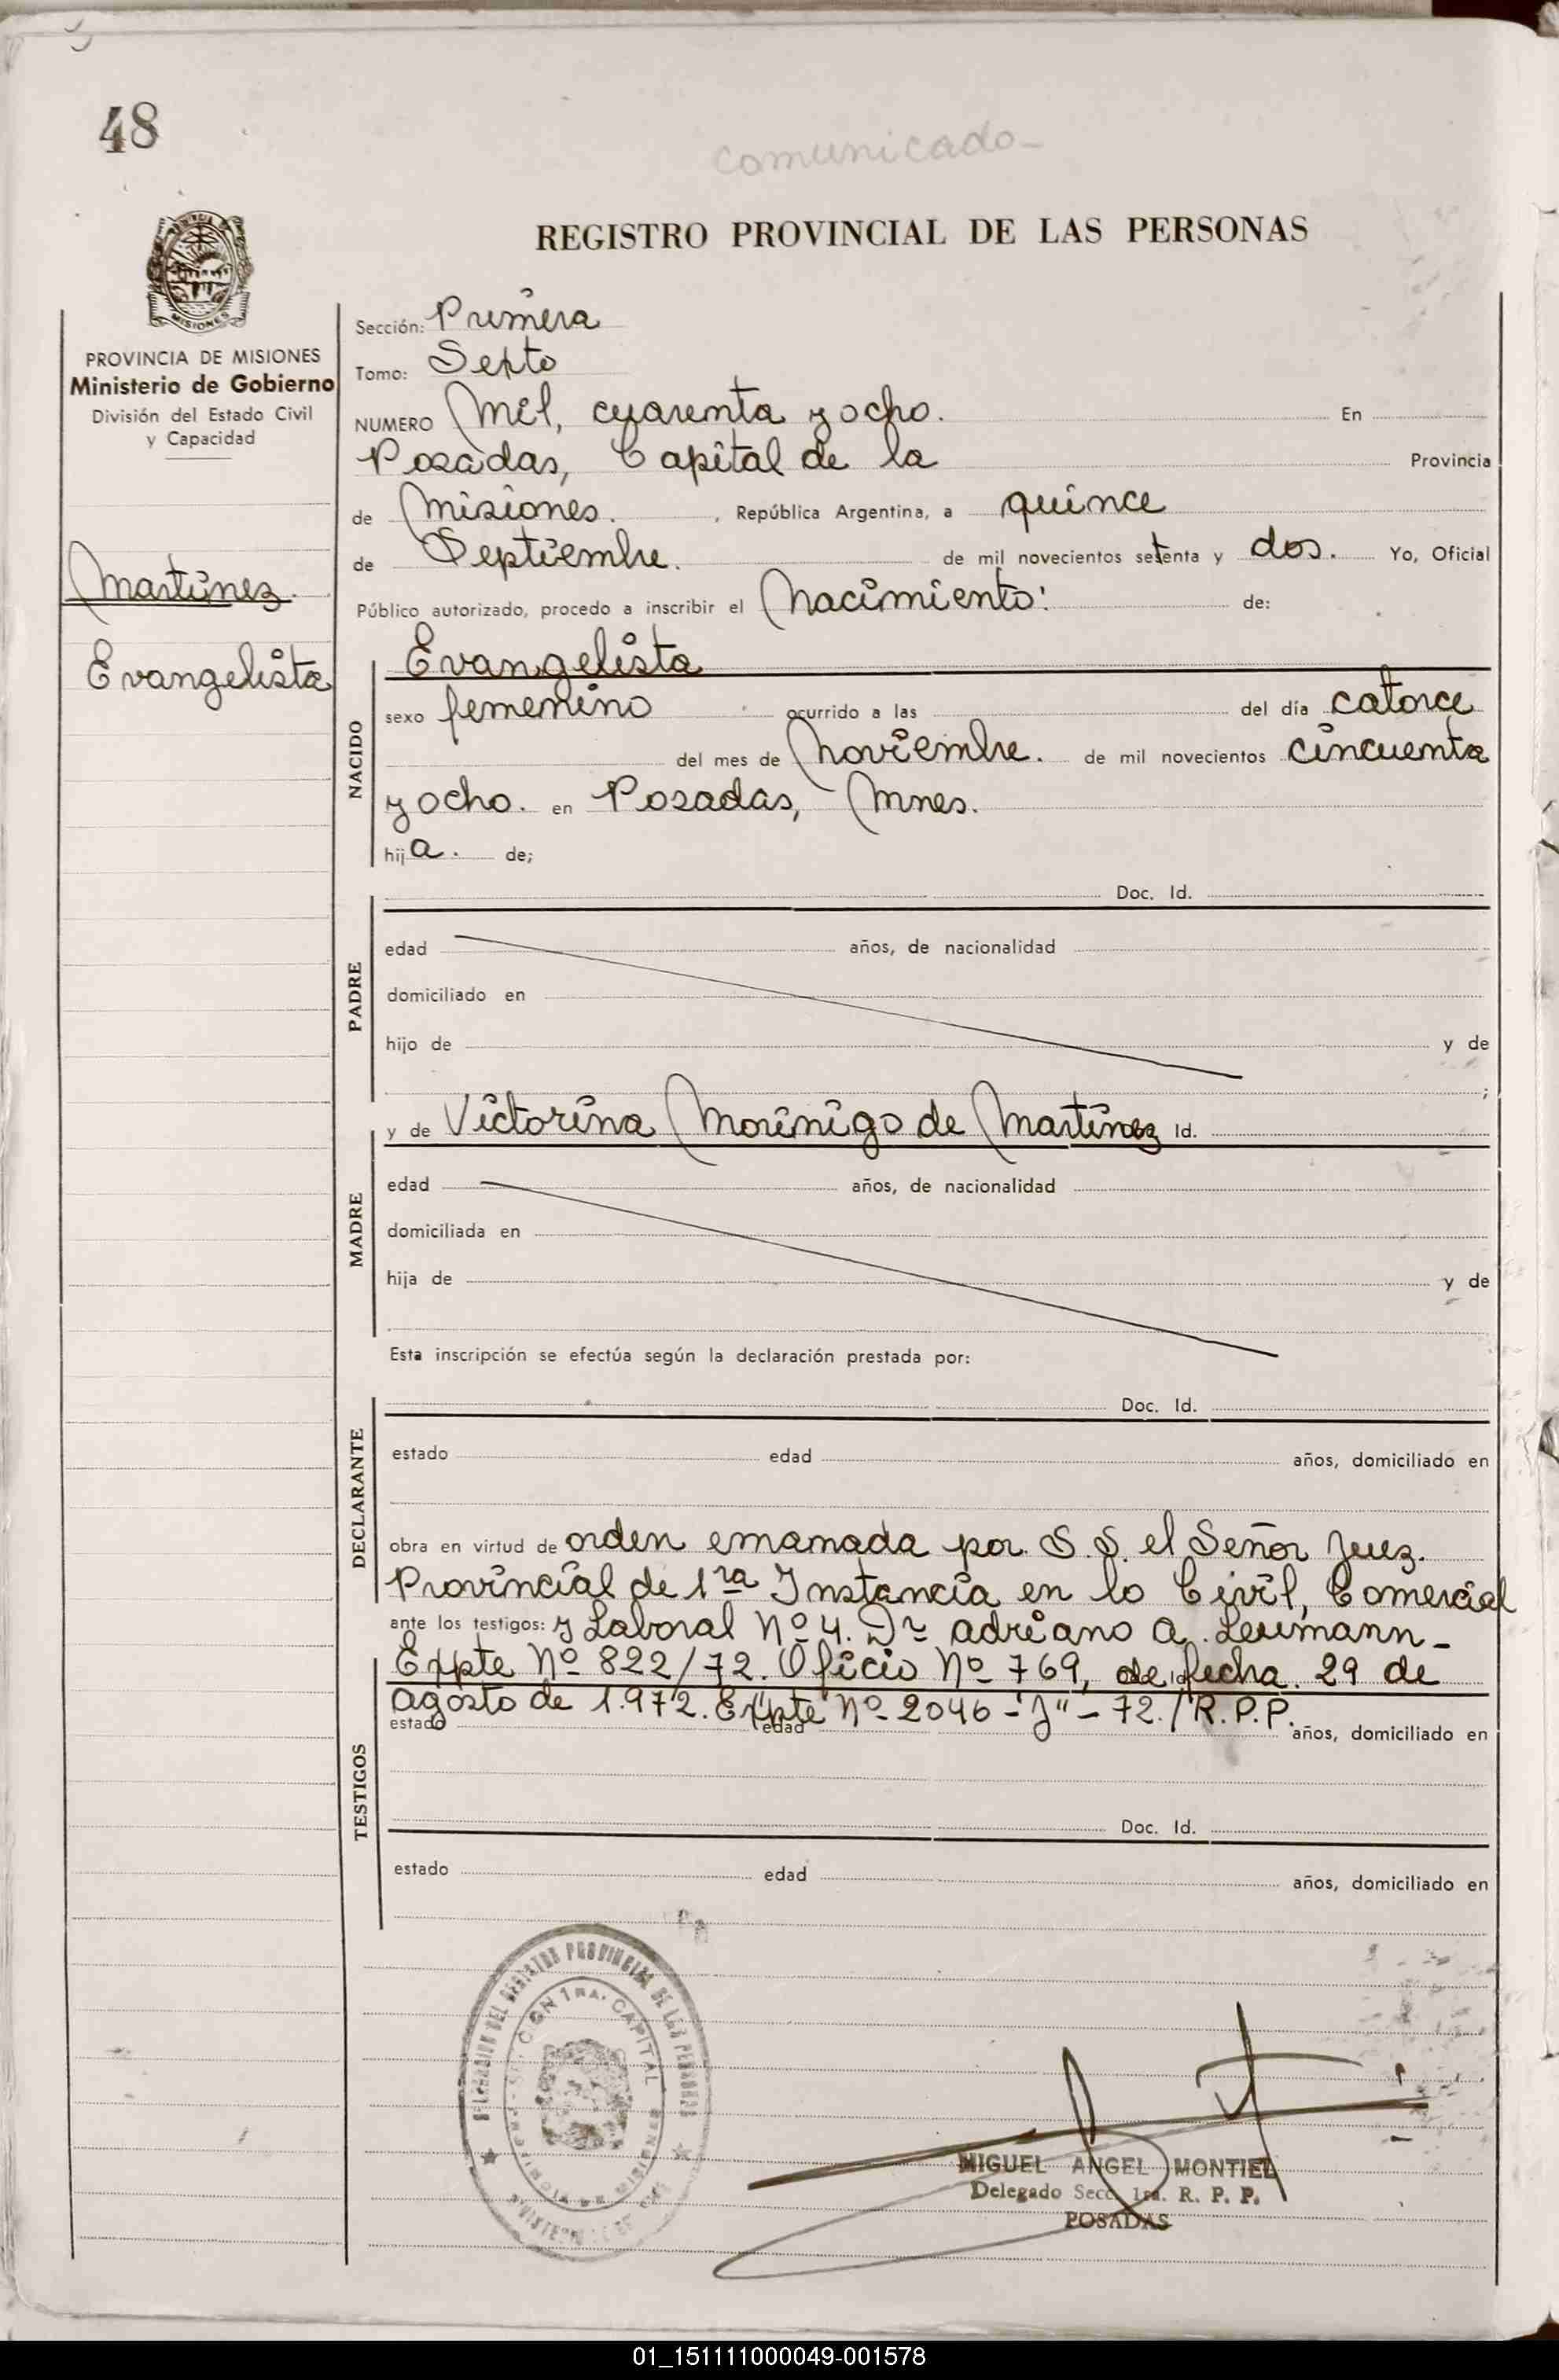 48
comunicado-
REGISTRO PROVINCIAL DE LAS PERSONAS
MISIONES
PROVINCIA DE MISIONES
Ministerio de Gobierno
División del Estado Civil
y Capacidad
Martínez.
Evangelista
Sección: Primera
Tomo: Septo
NUMERO Mil, cuarenta y ocho. En
Posadas, Capital de la Provincia
de Misiones. , República Argentina, a quince
de Septiembre. de mil novecientos setenta y dos. Yo, Oficial
Público autorizado, procedo a inscribir el Nacimiento: de:
NACIDO
Evangelista
sexo femenino ocurrido a las del día catorce
del mes de Noviembre. de mil novecientos cincuenta
y ocho. en Posadas, Mnes.
hija. de;
PADRE
Doc. Id.
edad años, de nacionalidad
domiciliado en
hijo de y de
;
MADRE
y de Victorina Morínigo de Martínez Id.
edad años, de nacionalidad
domiciliada en
hija de y de
Esta inscripción se efectúa según la declaración prestada por:
DECLARANTE
Doc. Id.
estado edad años, domiciliado en
obra en virtud de orden emanada por S.S. el Señor Juez.
Provincial de 1ra Instancia en lo Civil, Comercial
ante los testigos: y Laboral Nº 4. Dr adriano A. Leumann-
Expte Nº 822/72. Oficio Nº 769, de fecha. 29 de
agosto de 1.972. Expte Nº 2046-"J"-72./R.P.P.
TESTIGOS
estado edad años, domiciliado en
Doc. Id.
estado edad años, domiciliado en
DELEGACION DEL REGISTRO PROVINCIAL DE LAS PERSONAS
SECCION 1RA. CAPITAL
MIGUEL ANGEL MONTIEL
Delegado Secc. 1ra. R. P. P.
POSADAS
01_151111000049-001578